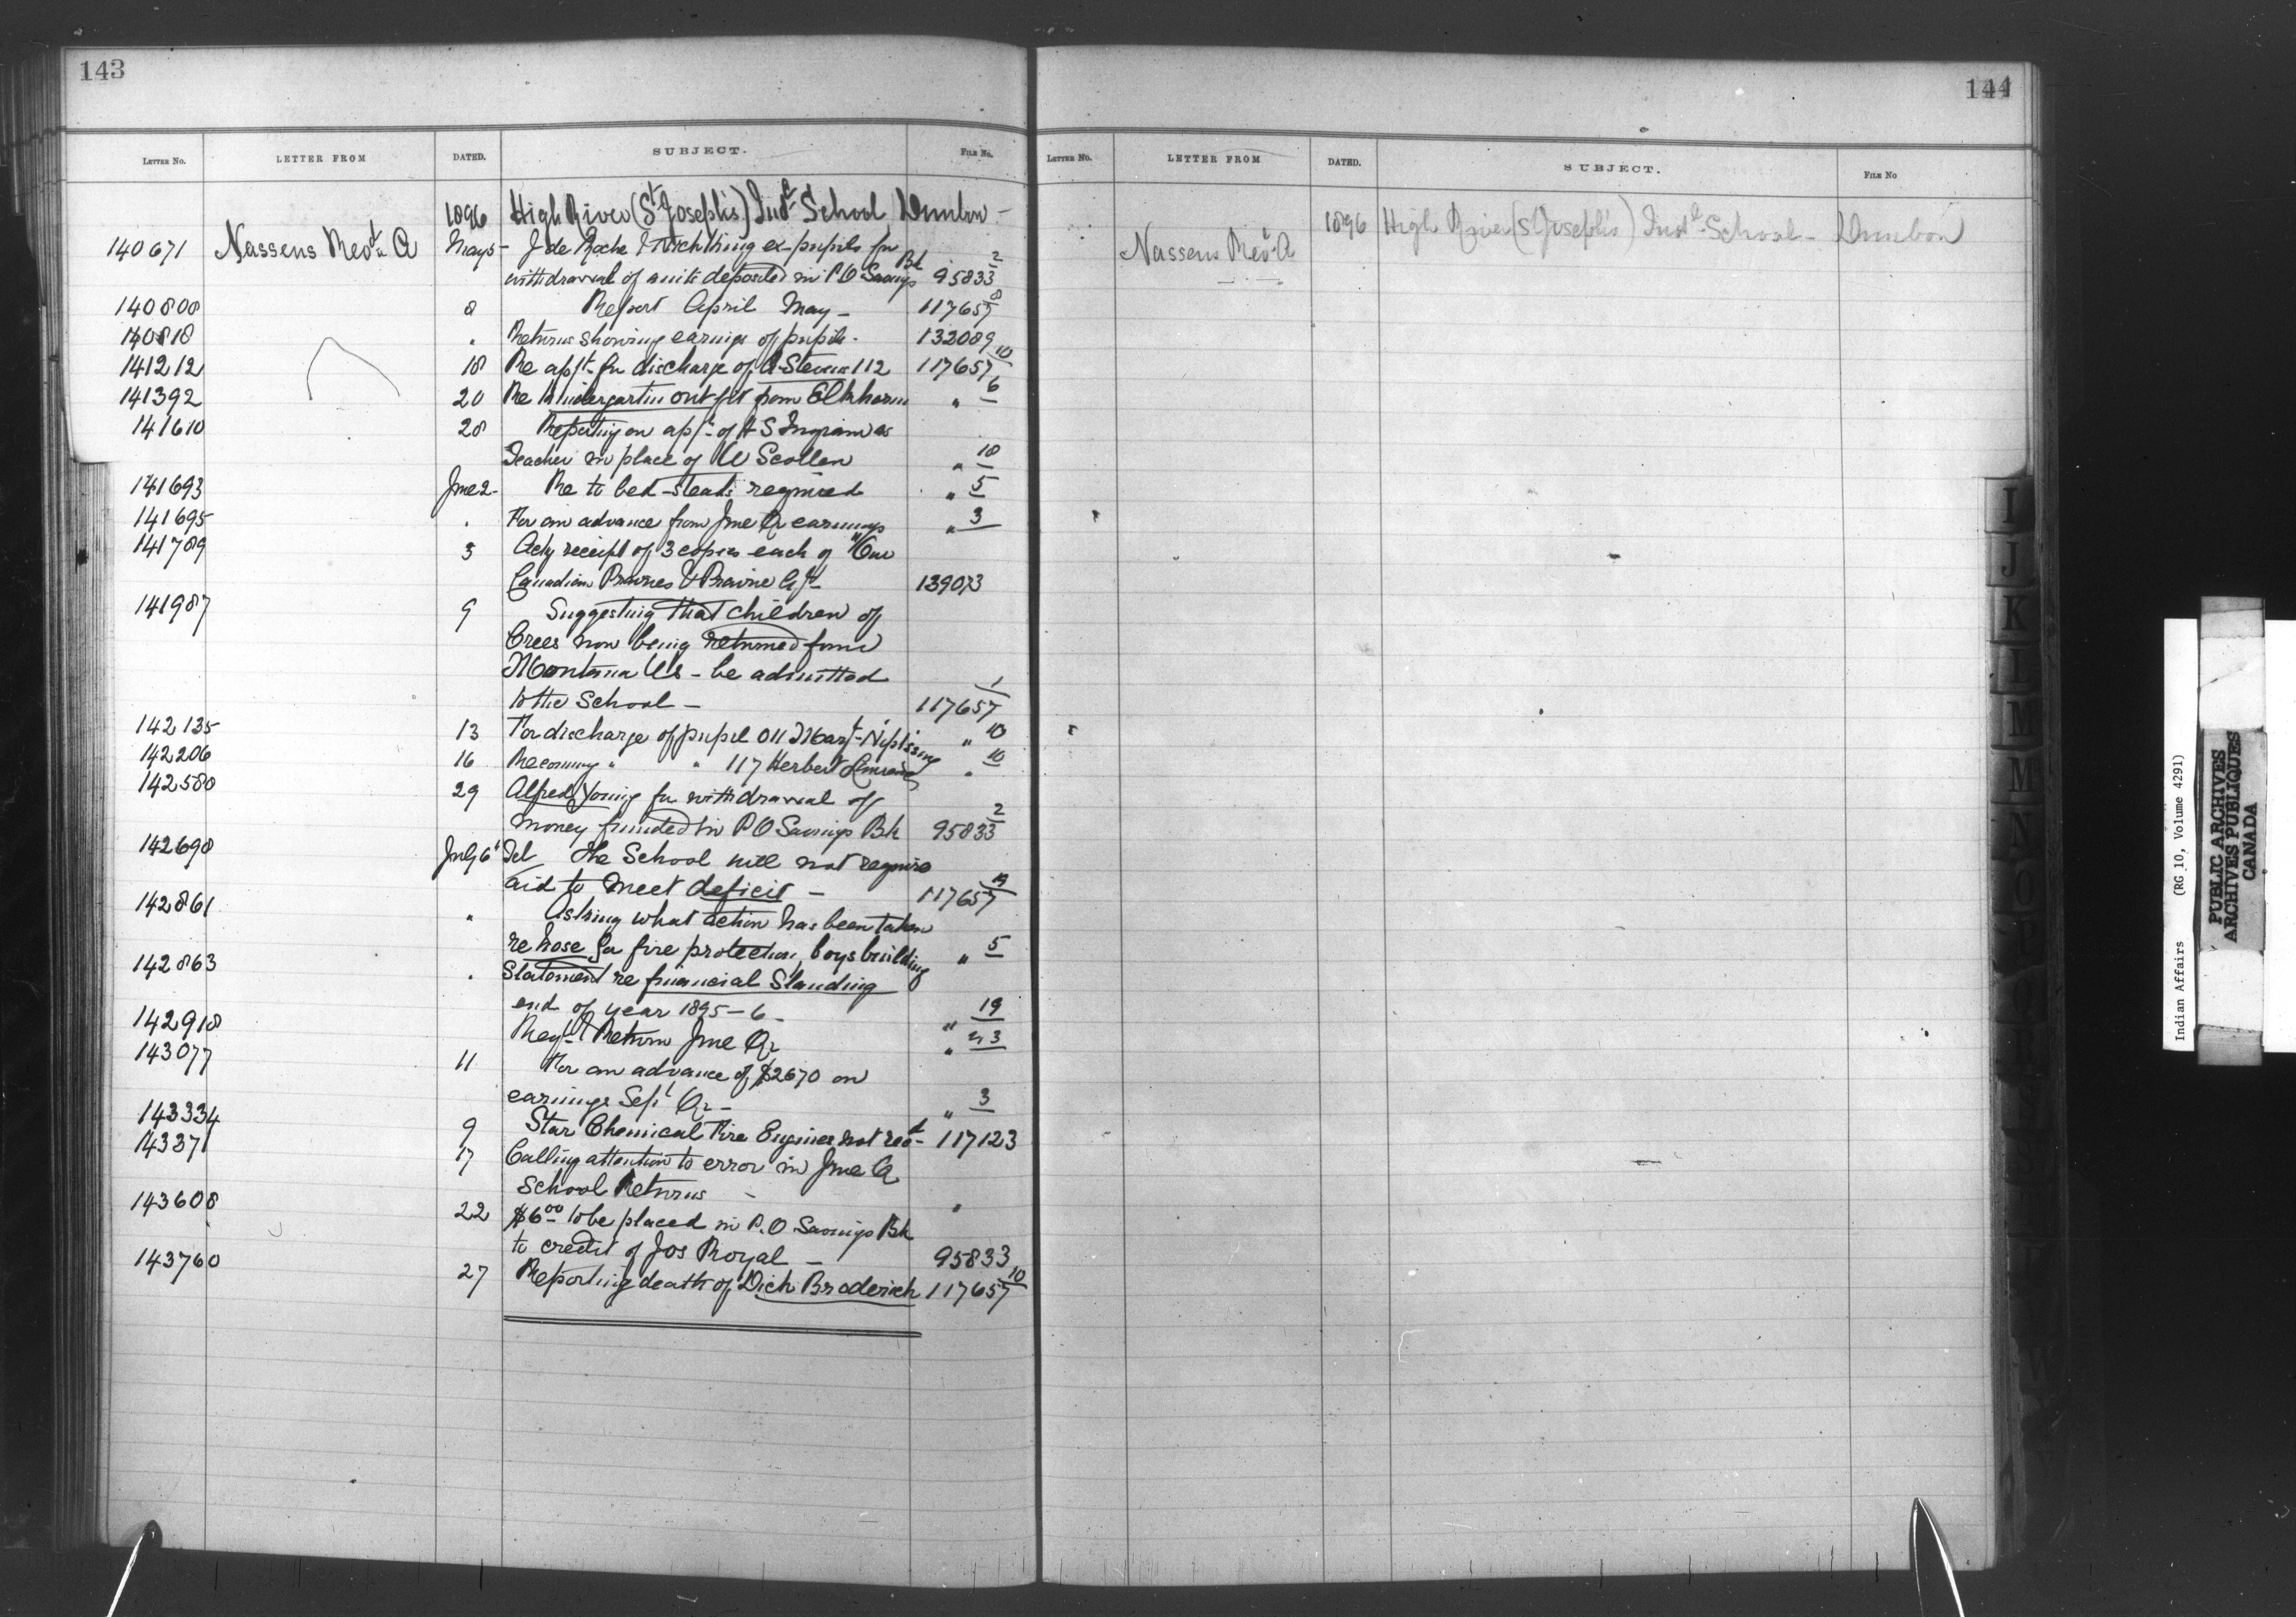 143
LETTER No. LETTER FROM DATED. SUBJECT. FILE No.
1896 High River (St Joseph's) Indl School Dunbow -
140671 Nassens Revd A May 5 - J de Roche & Rich King ex-pupils for
withdrawal of amts deposited in P O Savings Bk 95833 2
140808 8 Report April May - 117657 8
140818 " Returns showing earnings of pupils - 132089
141212 18 Re appt for discharge of A Stevens 112 117657 10
141392 20 Re Kindergarten outfit from Elkhorn " 6
141610 28 Reporting on appt of H S Ingram as
Teacher in place of W Scollen " 10
141693 Jne 2 - Re to bed-steads required " 5
141695 " For an advance from Jne Qr earnings " 3
141789 3 Ackg receipt of 3 copies each of "Our
Canadian Prairies & Prairie Agt 139073
141987 9 Suggesting that children of
Crees now being returned from
Montana US - be admitted
to the School - 117657 1
142135 13 For discharge of pupil 011 Margt Nipissing " 10
142206 16 Recommg " " 117 Herbert " 10
142580 29 Alfred Young for withdrawal of
money funded in P O Savings Bk 95833 2
142698 July 6 Tel The School will not require
aid to meet deficit - 117657 19
142861 " Asking what action has been taken
re hose for fire protection, boys building " 5
142863 " Statement re financial Standing
end of year 1895-6 - " 19
142918 Regr & Return Jne Qr " 3
143077 11 For an advance of $2670 on
earnings Sept Qr - " 3
143334 9 Star Chemical Fire Engines not recd - 117123
143371 17 Calling attention to error in Jne Qr
School Returns - "
143608 22 $6 00 to be placed in P.O Savings Bk
to credit of Jos Royal - 95833
143760 27 Reporting death of Dick Broderick 117657 10
144
LETTER No. LETTER FROM DATED. SUBJECT. FILE No
1896 High River (St Joseph's) Indl School - Dunbow
Nassens Revd A
I
J
K
L
M
M
N
O
P
Indian Affairs (RG 10, Volume 4291)
PUBLIC ARCHIVES
ARCHIVES PUBLIQUES
CANADA